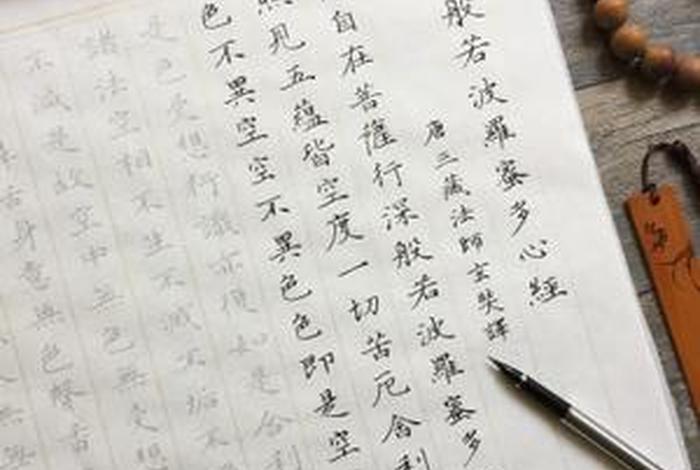 般若波羅蜜多心經
唐三藏法師玄奘譯
自在菩薩行深般若波羅蜜多
照見五蘊皆空度一切苦厄舍利
色不異空空不異色色即是空
是色受想行識亦復如是舍利
諸法空相不生不滅不垢不
不減是故空中無色無受想
舌身意無色聲香